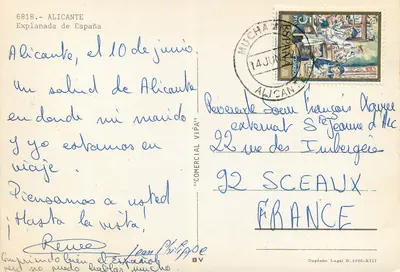 6818.- ALICANTE
Explanada de España
Alicante, el 10 de junio.
Un salud de Alicante
en donde mi marido
y yo estamos en
viaje.
Piensamos a usted
¡Hasta la vista,
Renee Jean Philippe
Comprendo bien el Español
pero no puedo hablar mucho.
"COMERCIAL VIPA"
BV
MUCHA
14 JUN
ALICANTE
ESPAÑA
Reverende Soeur François
externat Ste Jeanne d'Arc
22 rue des Imbergères
92 SCEAUX
FRANCE
Depósito Legal B.